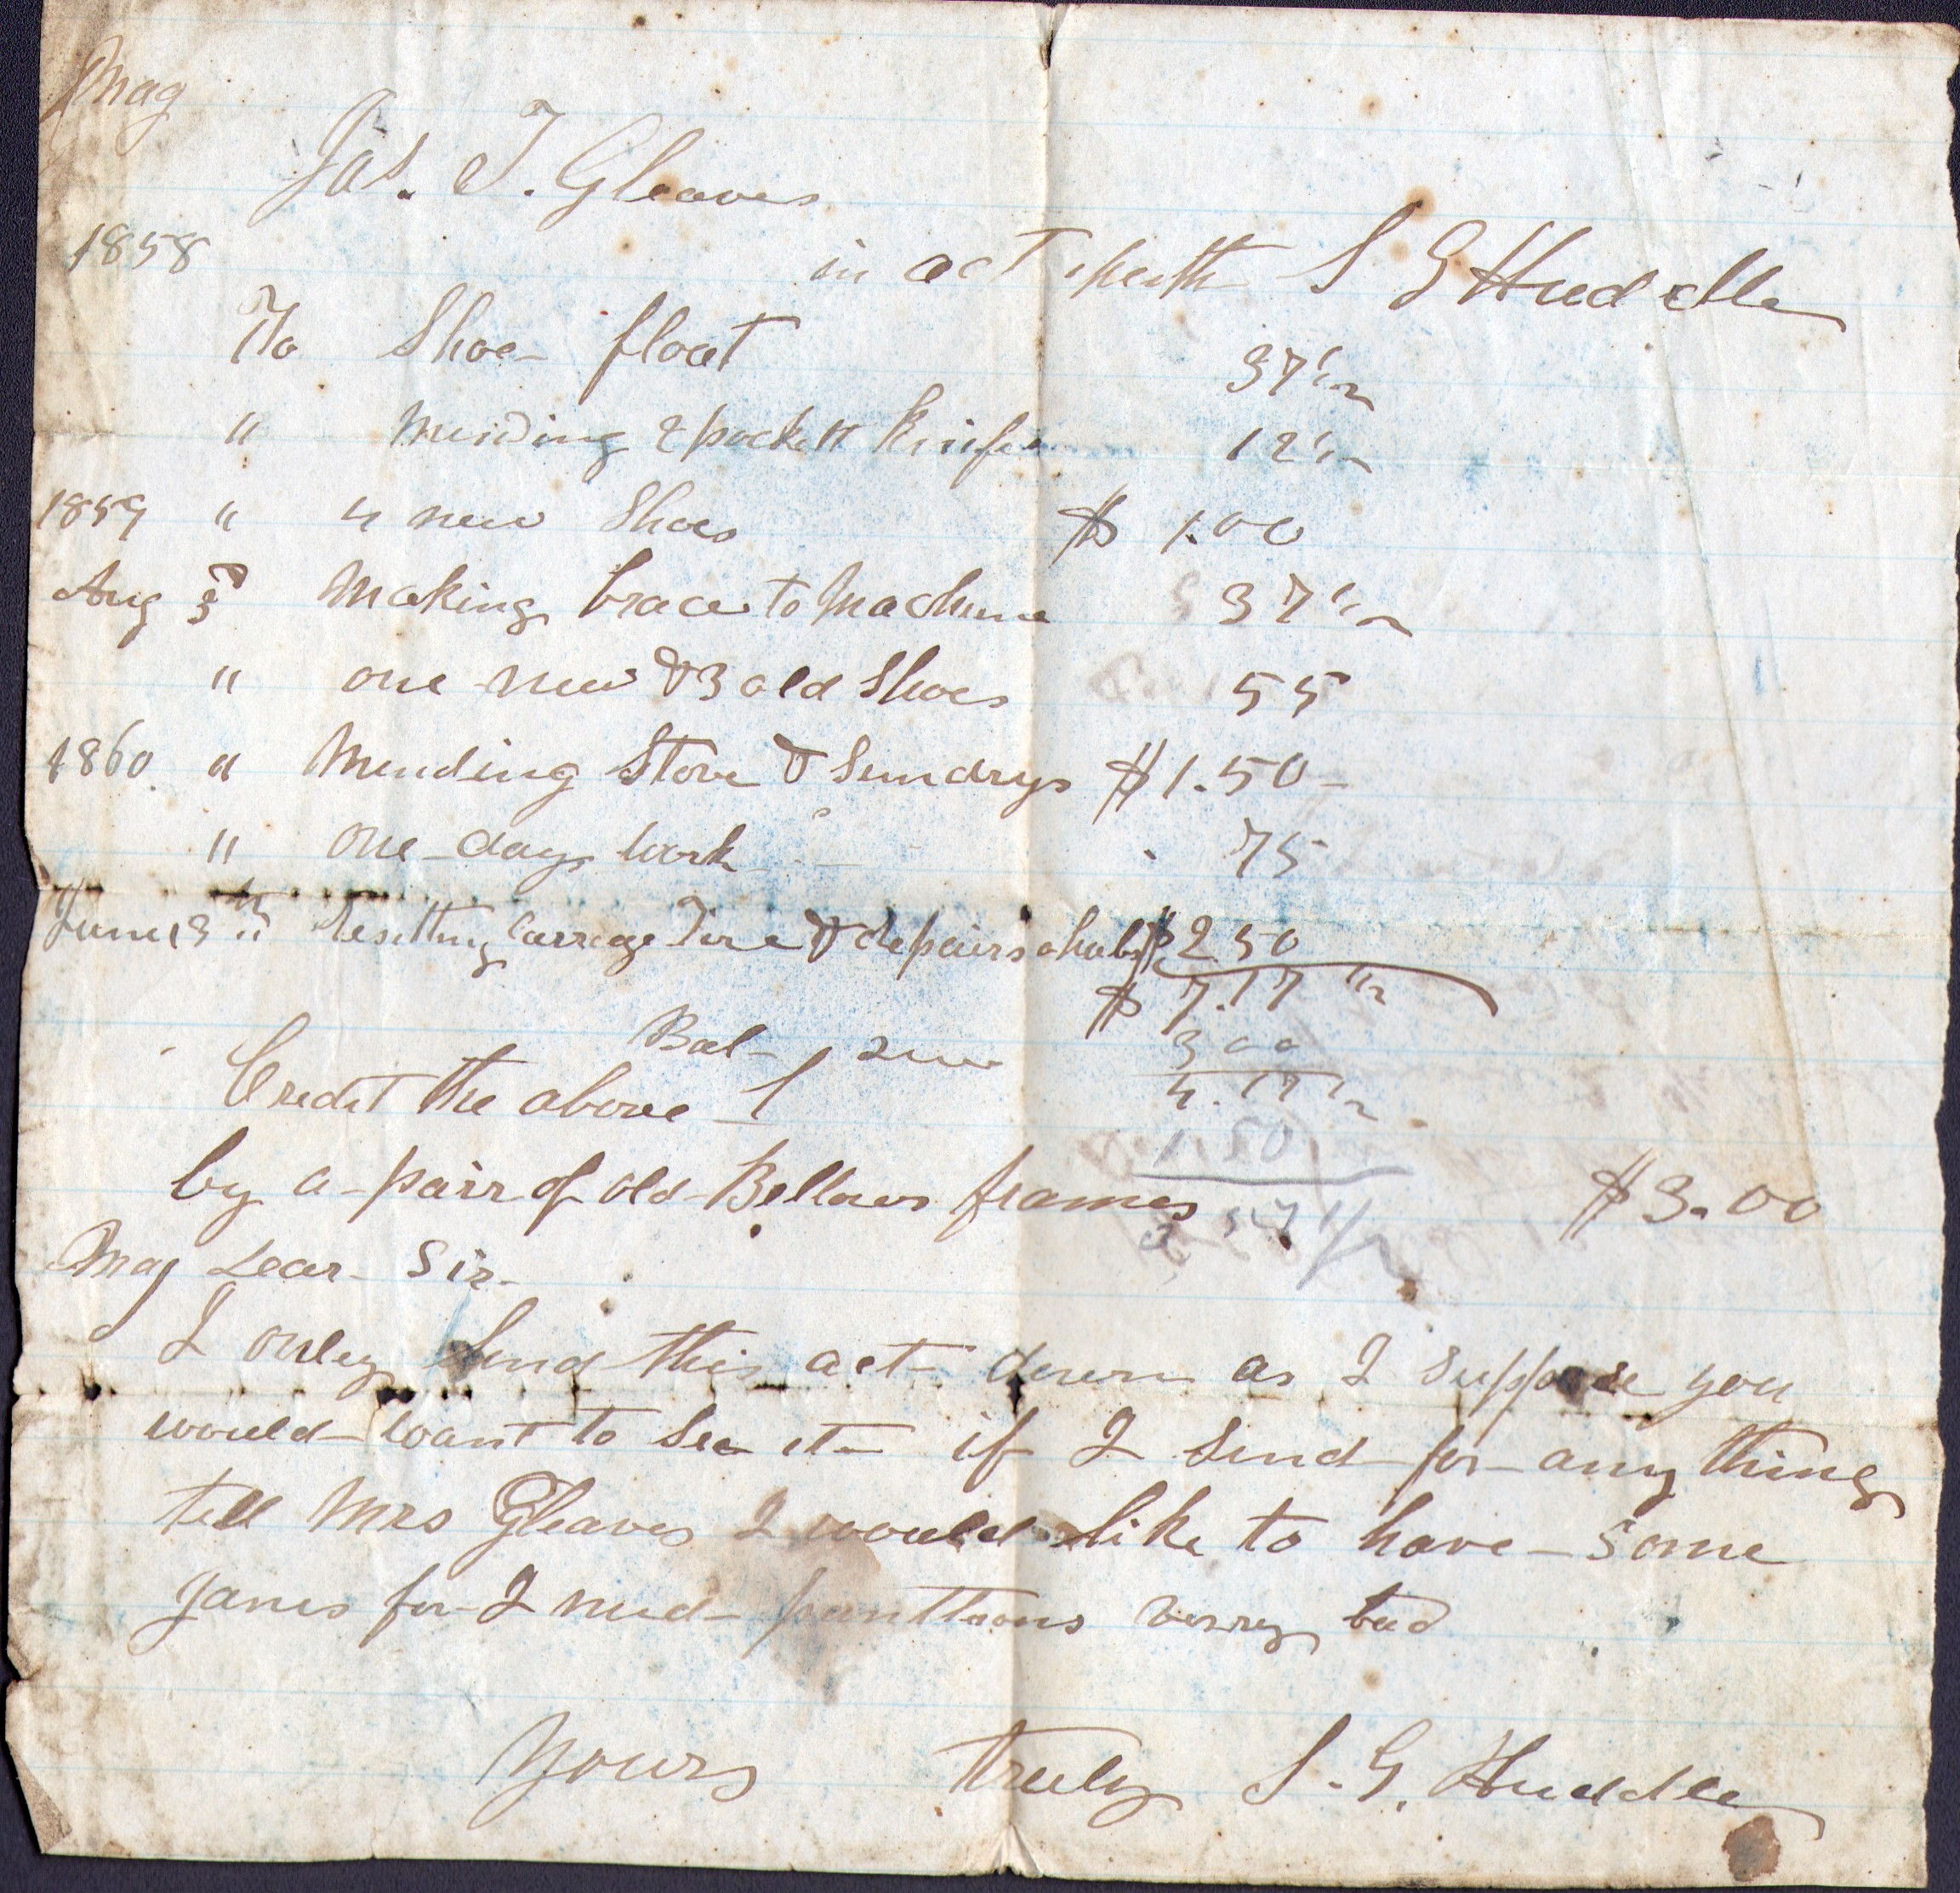 Maj
Jas. T. Gleaves
1858 in act with S G Huddle
To Shoe float 37 1/2
" Mending 2 pockett Knifes 12 1/2
1859 " 4 new Shoes $ 1.00
Aug 3 " Making brace to Machine 37 1/2
" one new & 3 old Shoes 55
1860 " Mending Stove & Sundrys $1.50
" one days work 75
June 13th " Resetting Carrege Tire & Repairs $2 50
$ 7.17 1/2
Bal- due 3 00
Credit the above 4.17 1/2
1.50
by a pair of old Bellows frames $3.00
Maj Dear Sir
I only send this act down as I suppose you
would want to see it if I send for any thing
tell Mrs Gleaves I would like to have some
Janes for I need panttaons verry bad
Yours truly S. G. Huddle